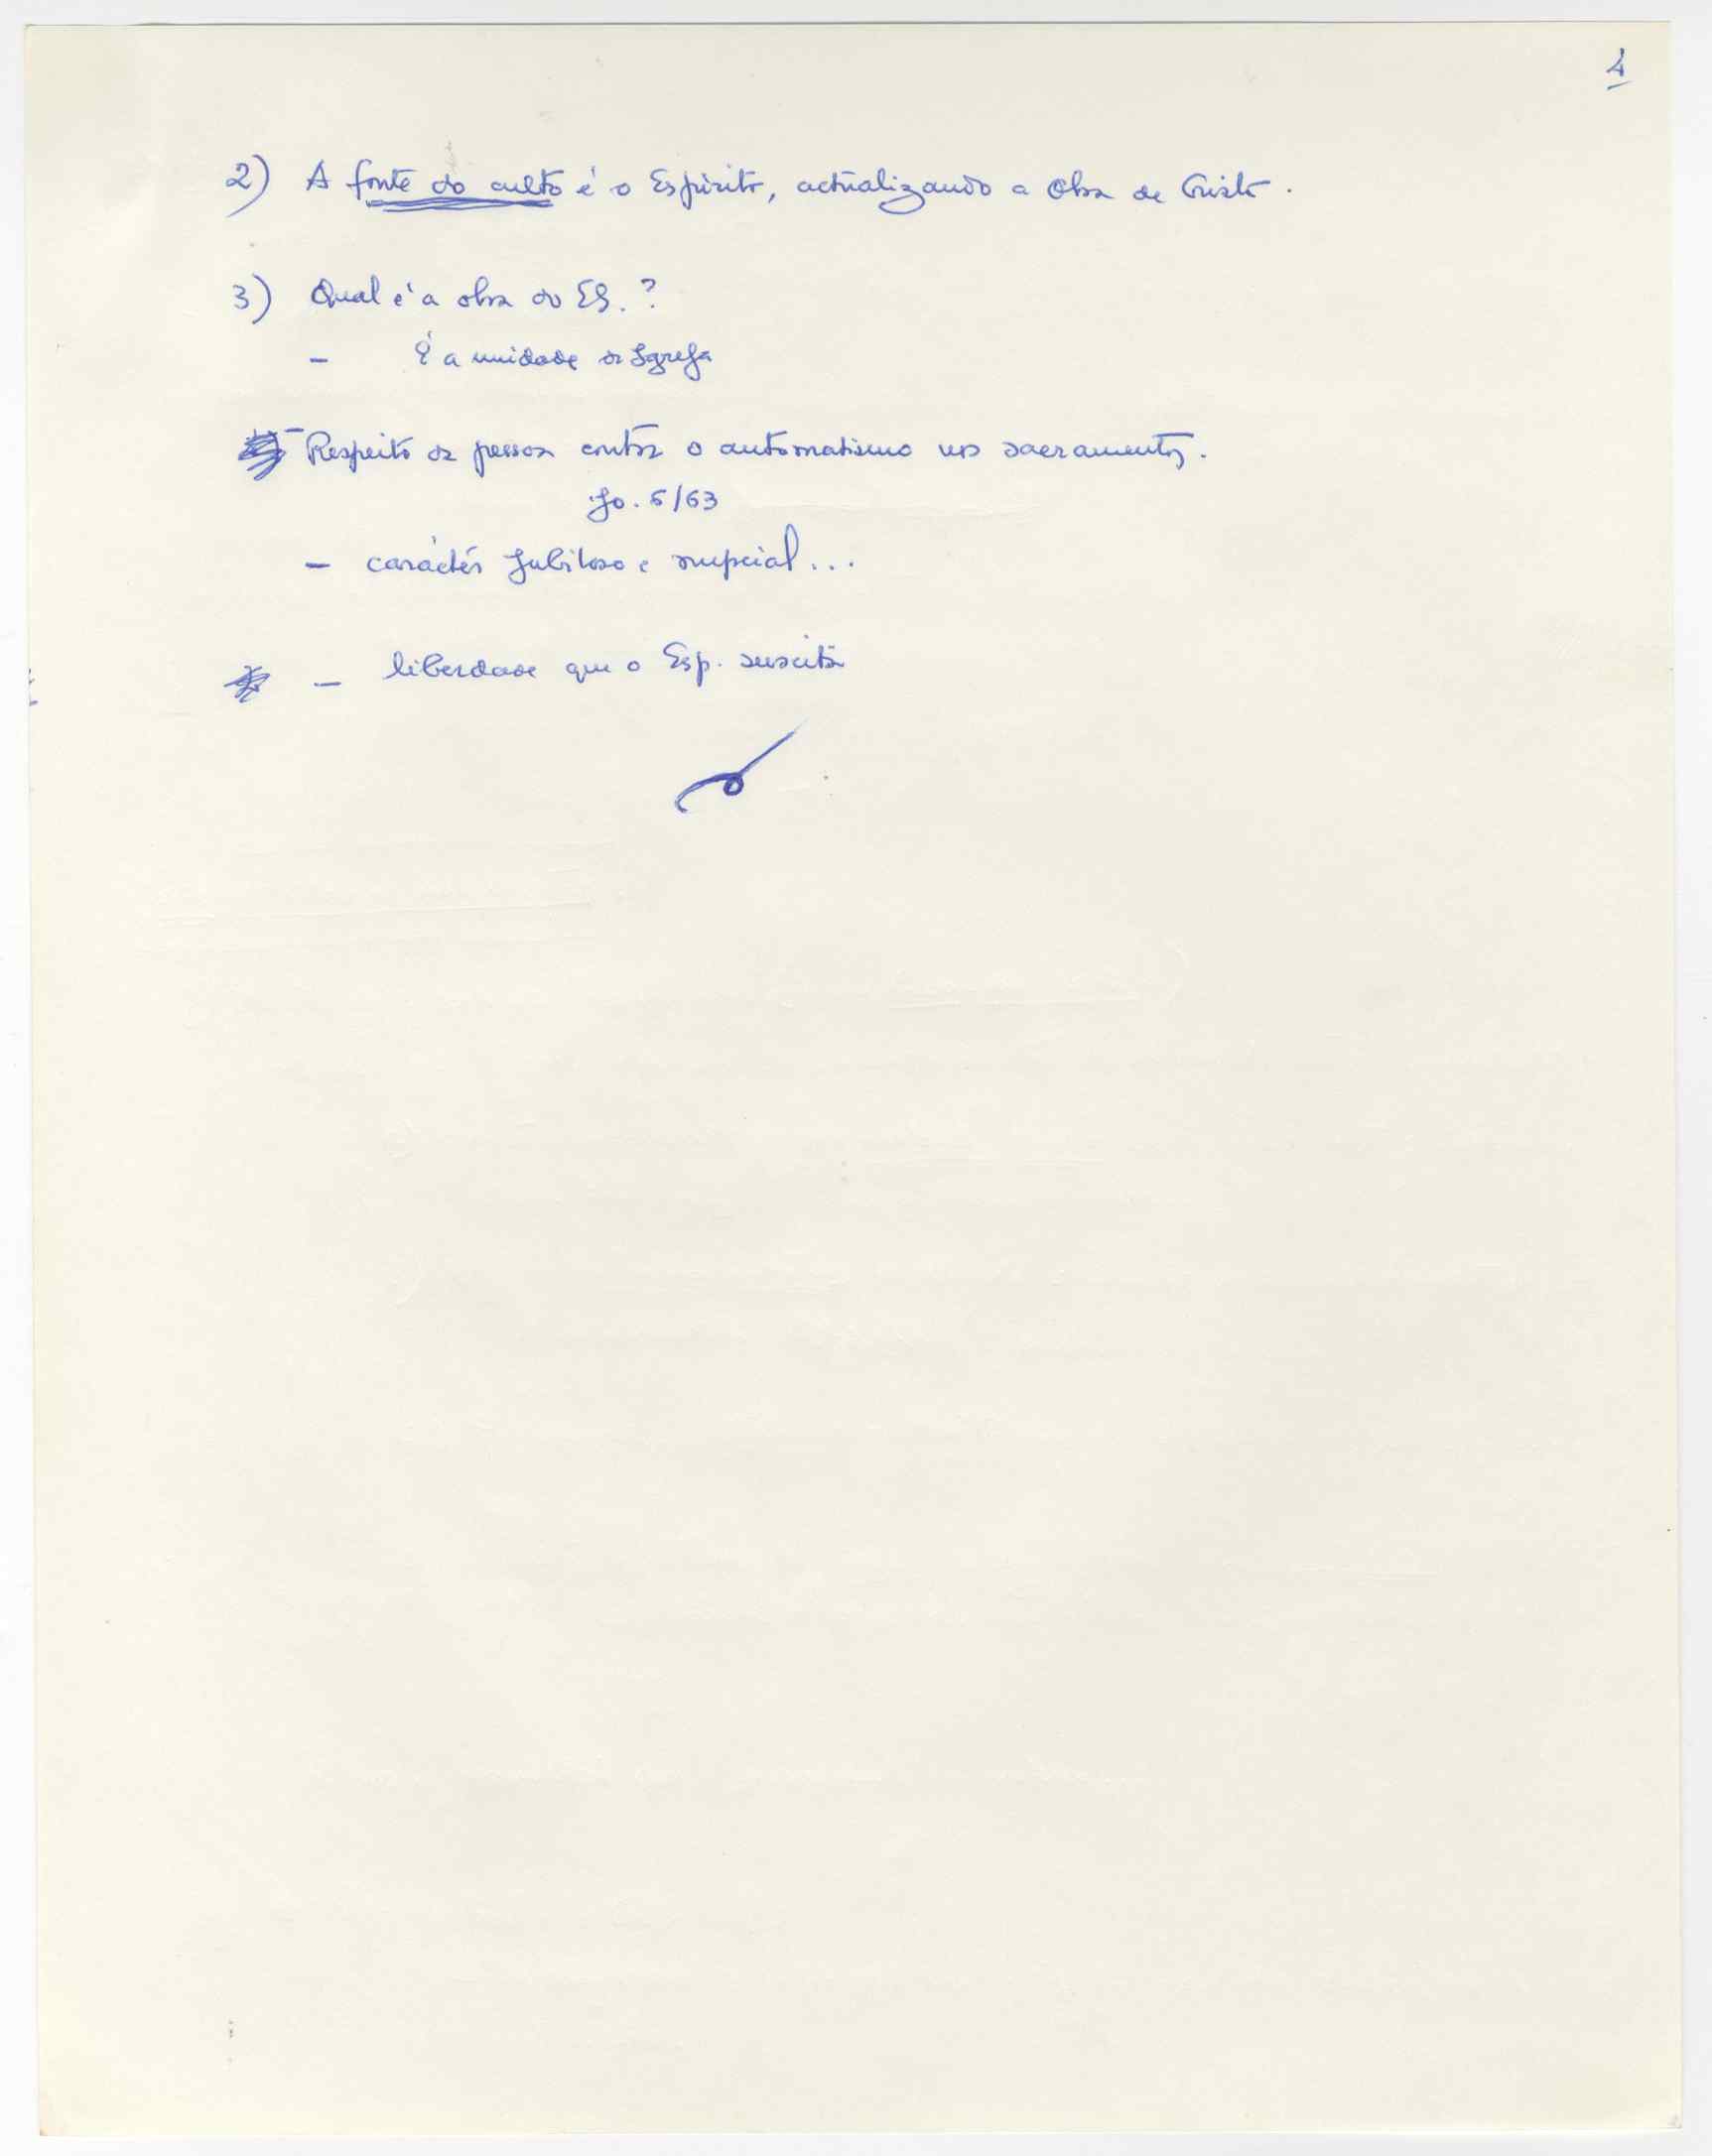 4
2) A fonte do culto é o Espírito, actualizando a Obra de Cristo.
3) Qual é a obra do ES.?
- É a unidade da Igreja
- Respeito da pessoa contra o automatismo nos sacramentos.
Jo. 6/63
- carácter jubiloso e nupcial...
- liberdade que o Esp. suscita